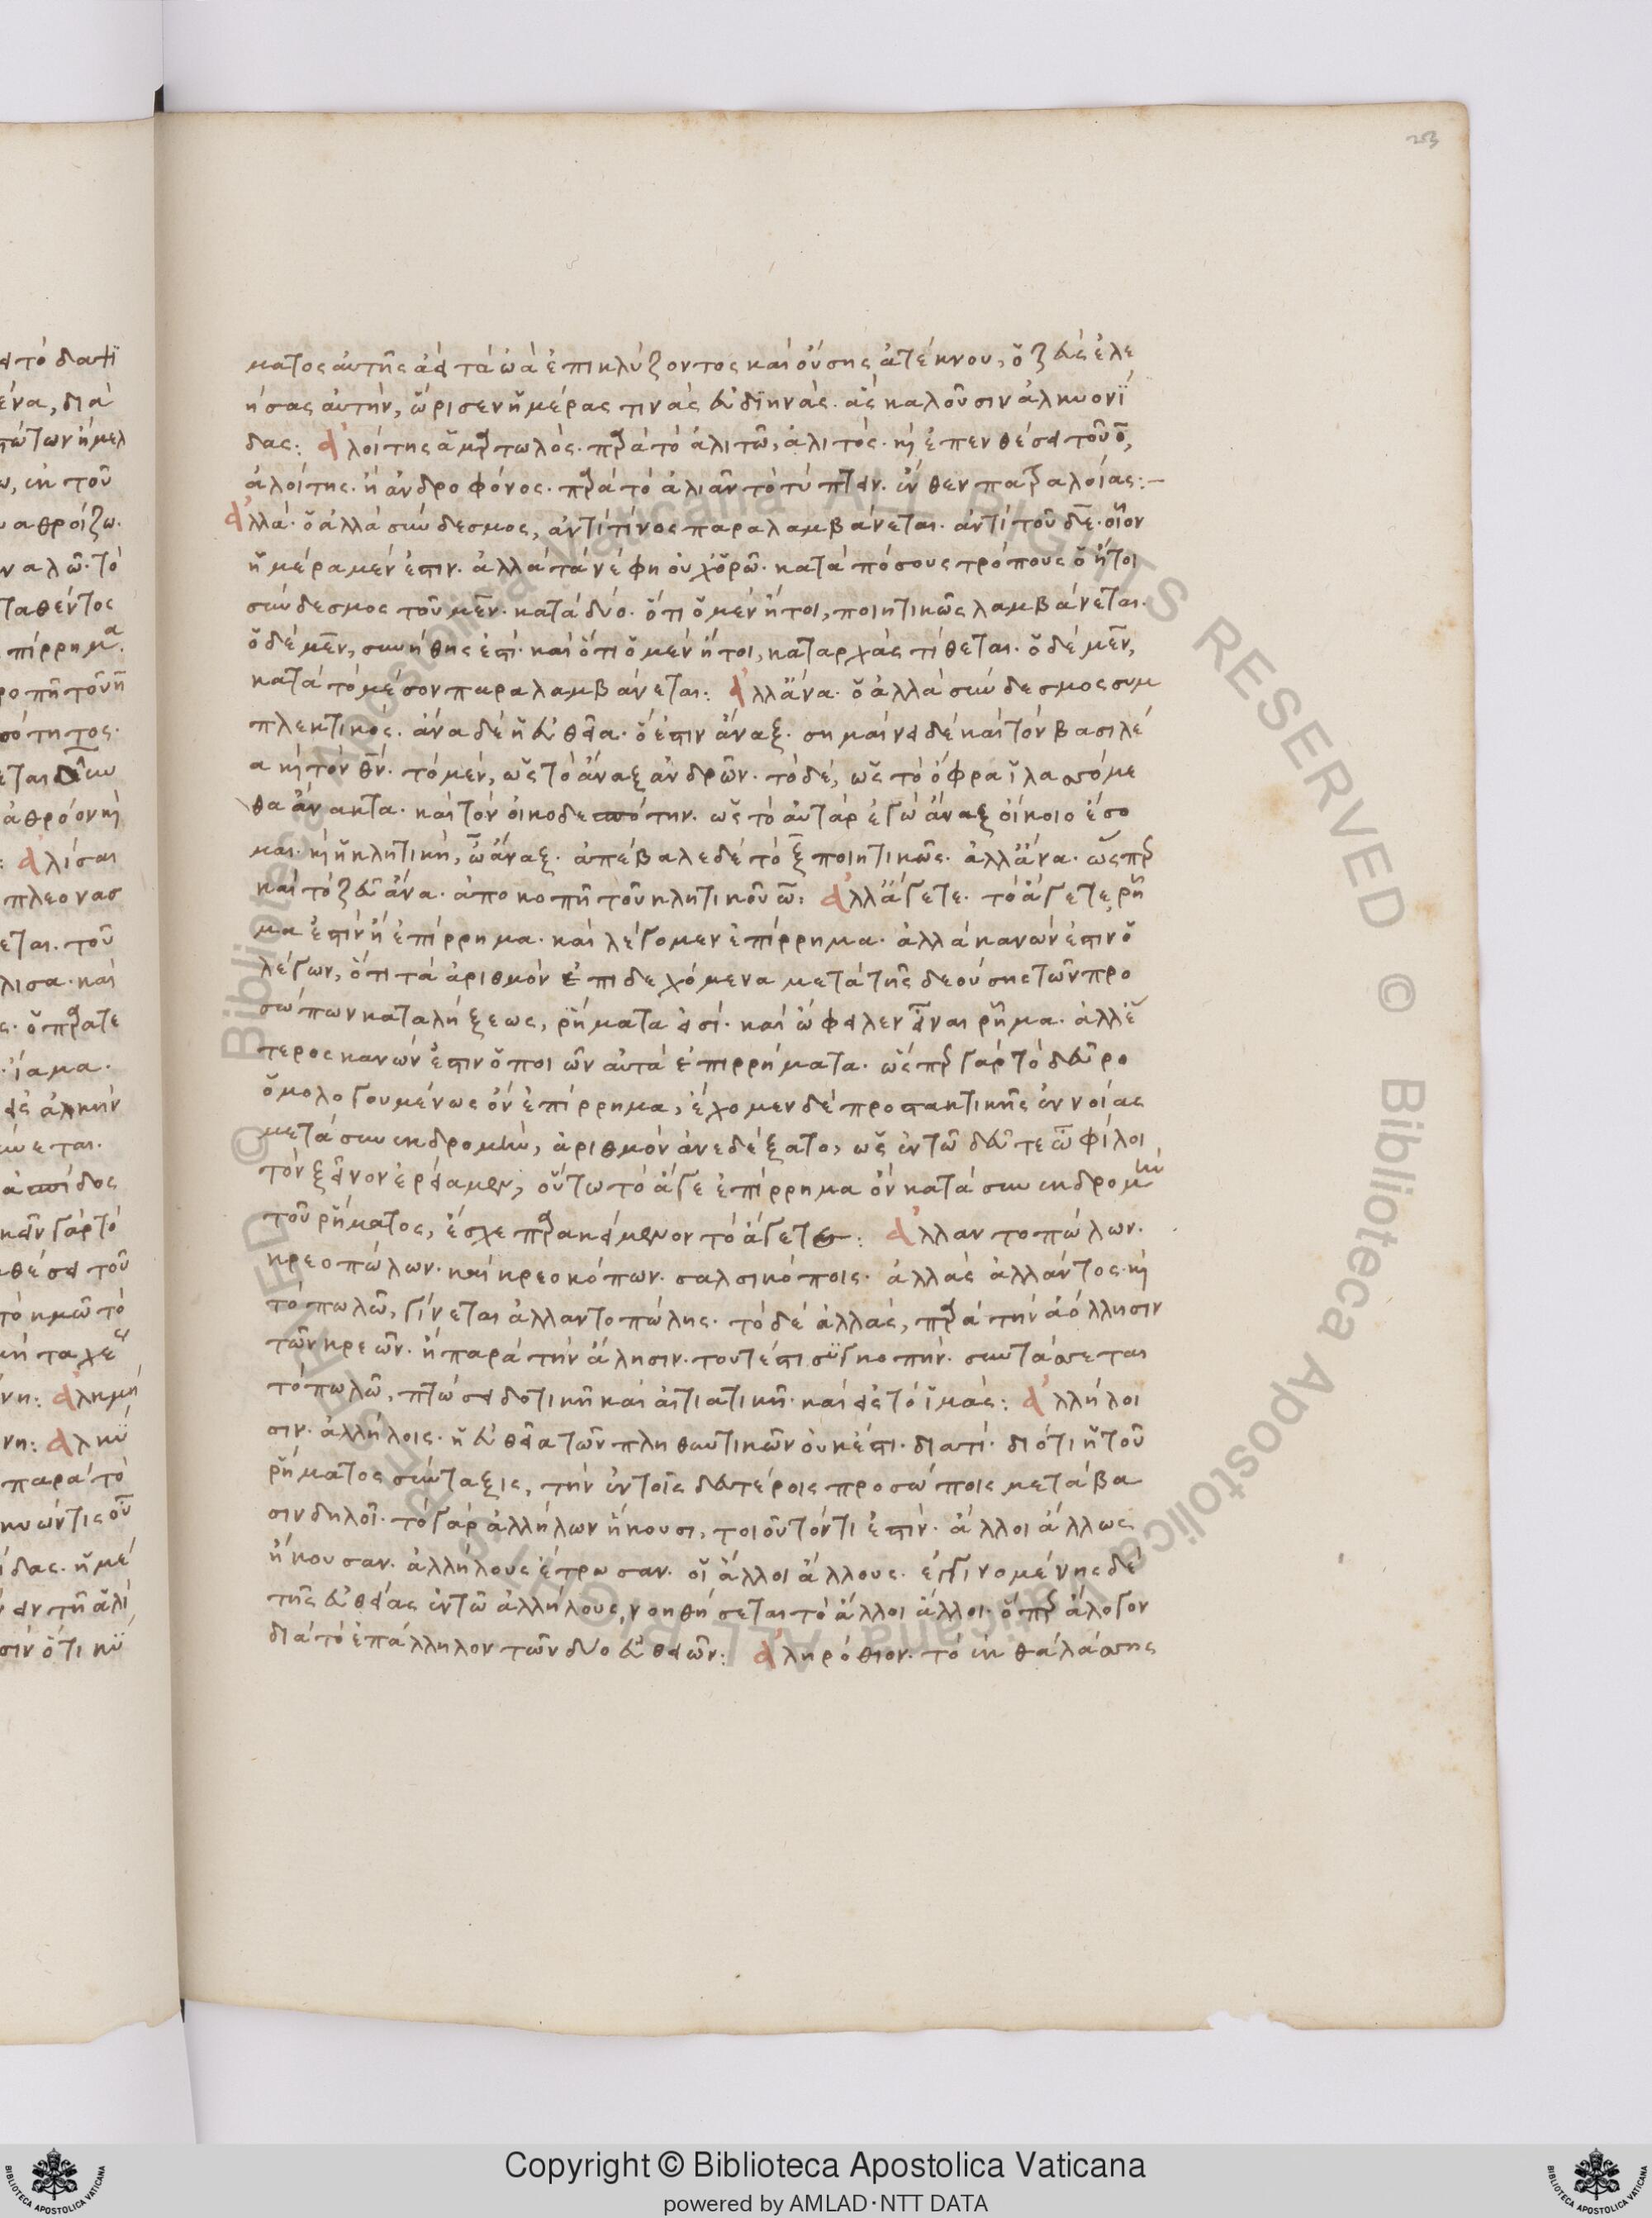 253
ματος αὐτῆς ἀεὶ τὰ ὠὰ ἐπικλύζοντος καὶ οὔσης ἀτέκνου, ὁ ζεὺς ἐλε
ήσας αὐτὴν, ὥρισεν ἡμέρας τινὰς εὐδϊηνάς. ἃς καλοῦσιν ἀλκυονϊ
δας: ἀλοίτης ἁμαρτωλός. παρὰ τὸ ἀλιτῶ, ἀλιτός. κὴ ἐπενθέσει τοῦ ο,
ἀλοίτης. ἢ ἀνδροφόνος. παρὰ τὸ ἀλιᾶν τὸ τύπτειν. ἔνθεν πατραλοίας:–
ἀλλά. ὁ ἀλλὰ σύνδεσμος, ἀντὶ τίνος παραλαμβάνεται. ἀντὶ τοῦ δε. οἷον
ἡμέρα μέν ἐστιν. ἀλλὰ τὰ νέφη οὐχ ὁρῶ. κατὰ πόσους τρόπους ὁ ἤτοι
σύνδεσμος τοῦ μεν. κατὰ δύο. ὅτι ὁ μὲν ἤτοι, ποιητικῶς λαμβάνεται.
ὁ δὲ μεν, συνήθης ἐστί. καὶ ὅτι ὁ μὲν ἤτοι, καταρχὰς τίθεται. ὁ δὲ μεν,
κατὰ τὸ μέσον παραλαμβάνεται: ἀλλ' ἄνα. ὁ ἀλλὰ σύνδεσμος συμ
πλεκτικός. ἄνα δὲ ἡ εὐθεῖα. ὅ ἐστιν ἄναξ. σημαίνει δὲ καὶ τὸν βασιλέ
α κὴ τὸν θν. τὸ μέν, ὡς τὸ ἄναξ ἀνδρῶν. τὸ δέ, ὡς τὸ ὄφρα ἱλασσόμε
θα ἄνακτα. καὶ τὸν οἰκοδεσπότην. ὡς τὸ αὐτὰρ ἐγὼ ἄναξ οἴκοιο ἔσο
μαι. κὴ ἡ κλητικὴ, ὦ ἄναξ. ἀπέβαλε δὲ τὸ ξ ποιητικῶς. ἀλλ' ἄνα. ὥσπερ
καὶ τὸ ζεῦ ἄνα. ἀποκοπῇ τοῦ κλητικοῦ ω: ἀλλ' ἄγετε. τὸ ἄγετε ῥῆ
μα ἐστὶν ἢ ἐπίρρημα. καὶ λέγομεν ἐπίρρημα. ἀλλὰ κανών ἐστιν ὁ
λέγων, ὅτι τὰ ἀριθμὸν ἐπιδεχόμενα μετὰ τῆς δεούσης τῶν προ
σώπων καταλήξεως, ῥήματα εἰσί. καὶ ὤφειλεν εἶναι ῥῆμα. ἀλλ' ἕ
τερος κανών ἐστιν ὁ ποιῶν αὐτὰ ἐπιρρήματα. ὥσπερ γὰρ τὸ δεῦρο
ὁμολογουμένως ὂν ἐπίρρημα, ἐχομεν δὲ προστακτικῆς ἐννοίας
μετὰ συνεκδρομὴν, ἀριθμὸν ἀνεδέξατο, ὡς ἐν τῶ δεῦτε ὦ φίλοι
τὸν ξεῖνον ἐρείαμεν, οὕτω τὸ ἄγε ἐπίρρημα ὂν κατὰ συνεκδρομὴν
τοῦ ῥήματος, ἔσχε παρακείμενον τὸ ἄγετε: ἀλλαντοπώλων.
κρεοπώλων. καὶ κρεοκόπων. σαλσικόποις. ἀλλὰς ἀλλάντος. κὴ
τὸ πωλῶ, γίνεται ἀλλαντοπώλης. τὸ δὲ ἀλλὰς, παρὰ τὴν ἀόλλησιν
τῶν κρεῶν. ἢ παρὰ τὴν ἅλησιν. τουτέστι συγκοπήν. συντάσσεται
τὸ πωλῶ, πτώσει δοτικῇ καὶ αἰτιατικῇ. καὶ εἰς τὸ ἱμάς: ἀλλήλοι
σιν. ἀλλήλοις. ἡ εὐθεῖα τῶν πληθυντικῶν οὐκ ἔστι. διατί. διότι ἡ τοῦ
ῥήματος σύνταξις, τὴν ἐν τοῖς δευτέροις προσώποις μετάβα
σιν δηλοῖ. τὸ γὰρ ἀλλήλων ἤκουσι, τοιοῦτόν τι ἐστίν. ἄλλοι ἄλλως
ἤκουσαν. ἀλλήλους ἔτρωσαν. οἱ ἄλλοι ἄλλους. ἐγγινομένης δὲ
τῆς εὐθείας ἐν τῶ ἀλλήλους, νοηθήσεται τὸ ἄλλοι ἄλλοι. ὅπερ ἄλογον
διὰ τὸ ἐπάλληλον τῶν δύο εὐθειῶν: ἁλιρόθιον. τὸ ἐν θαλάσσης
Copyright © Biblioteca Apostolica Vaticana
powered by AMLAD·NTT DATA